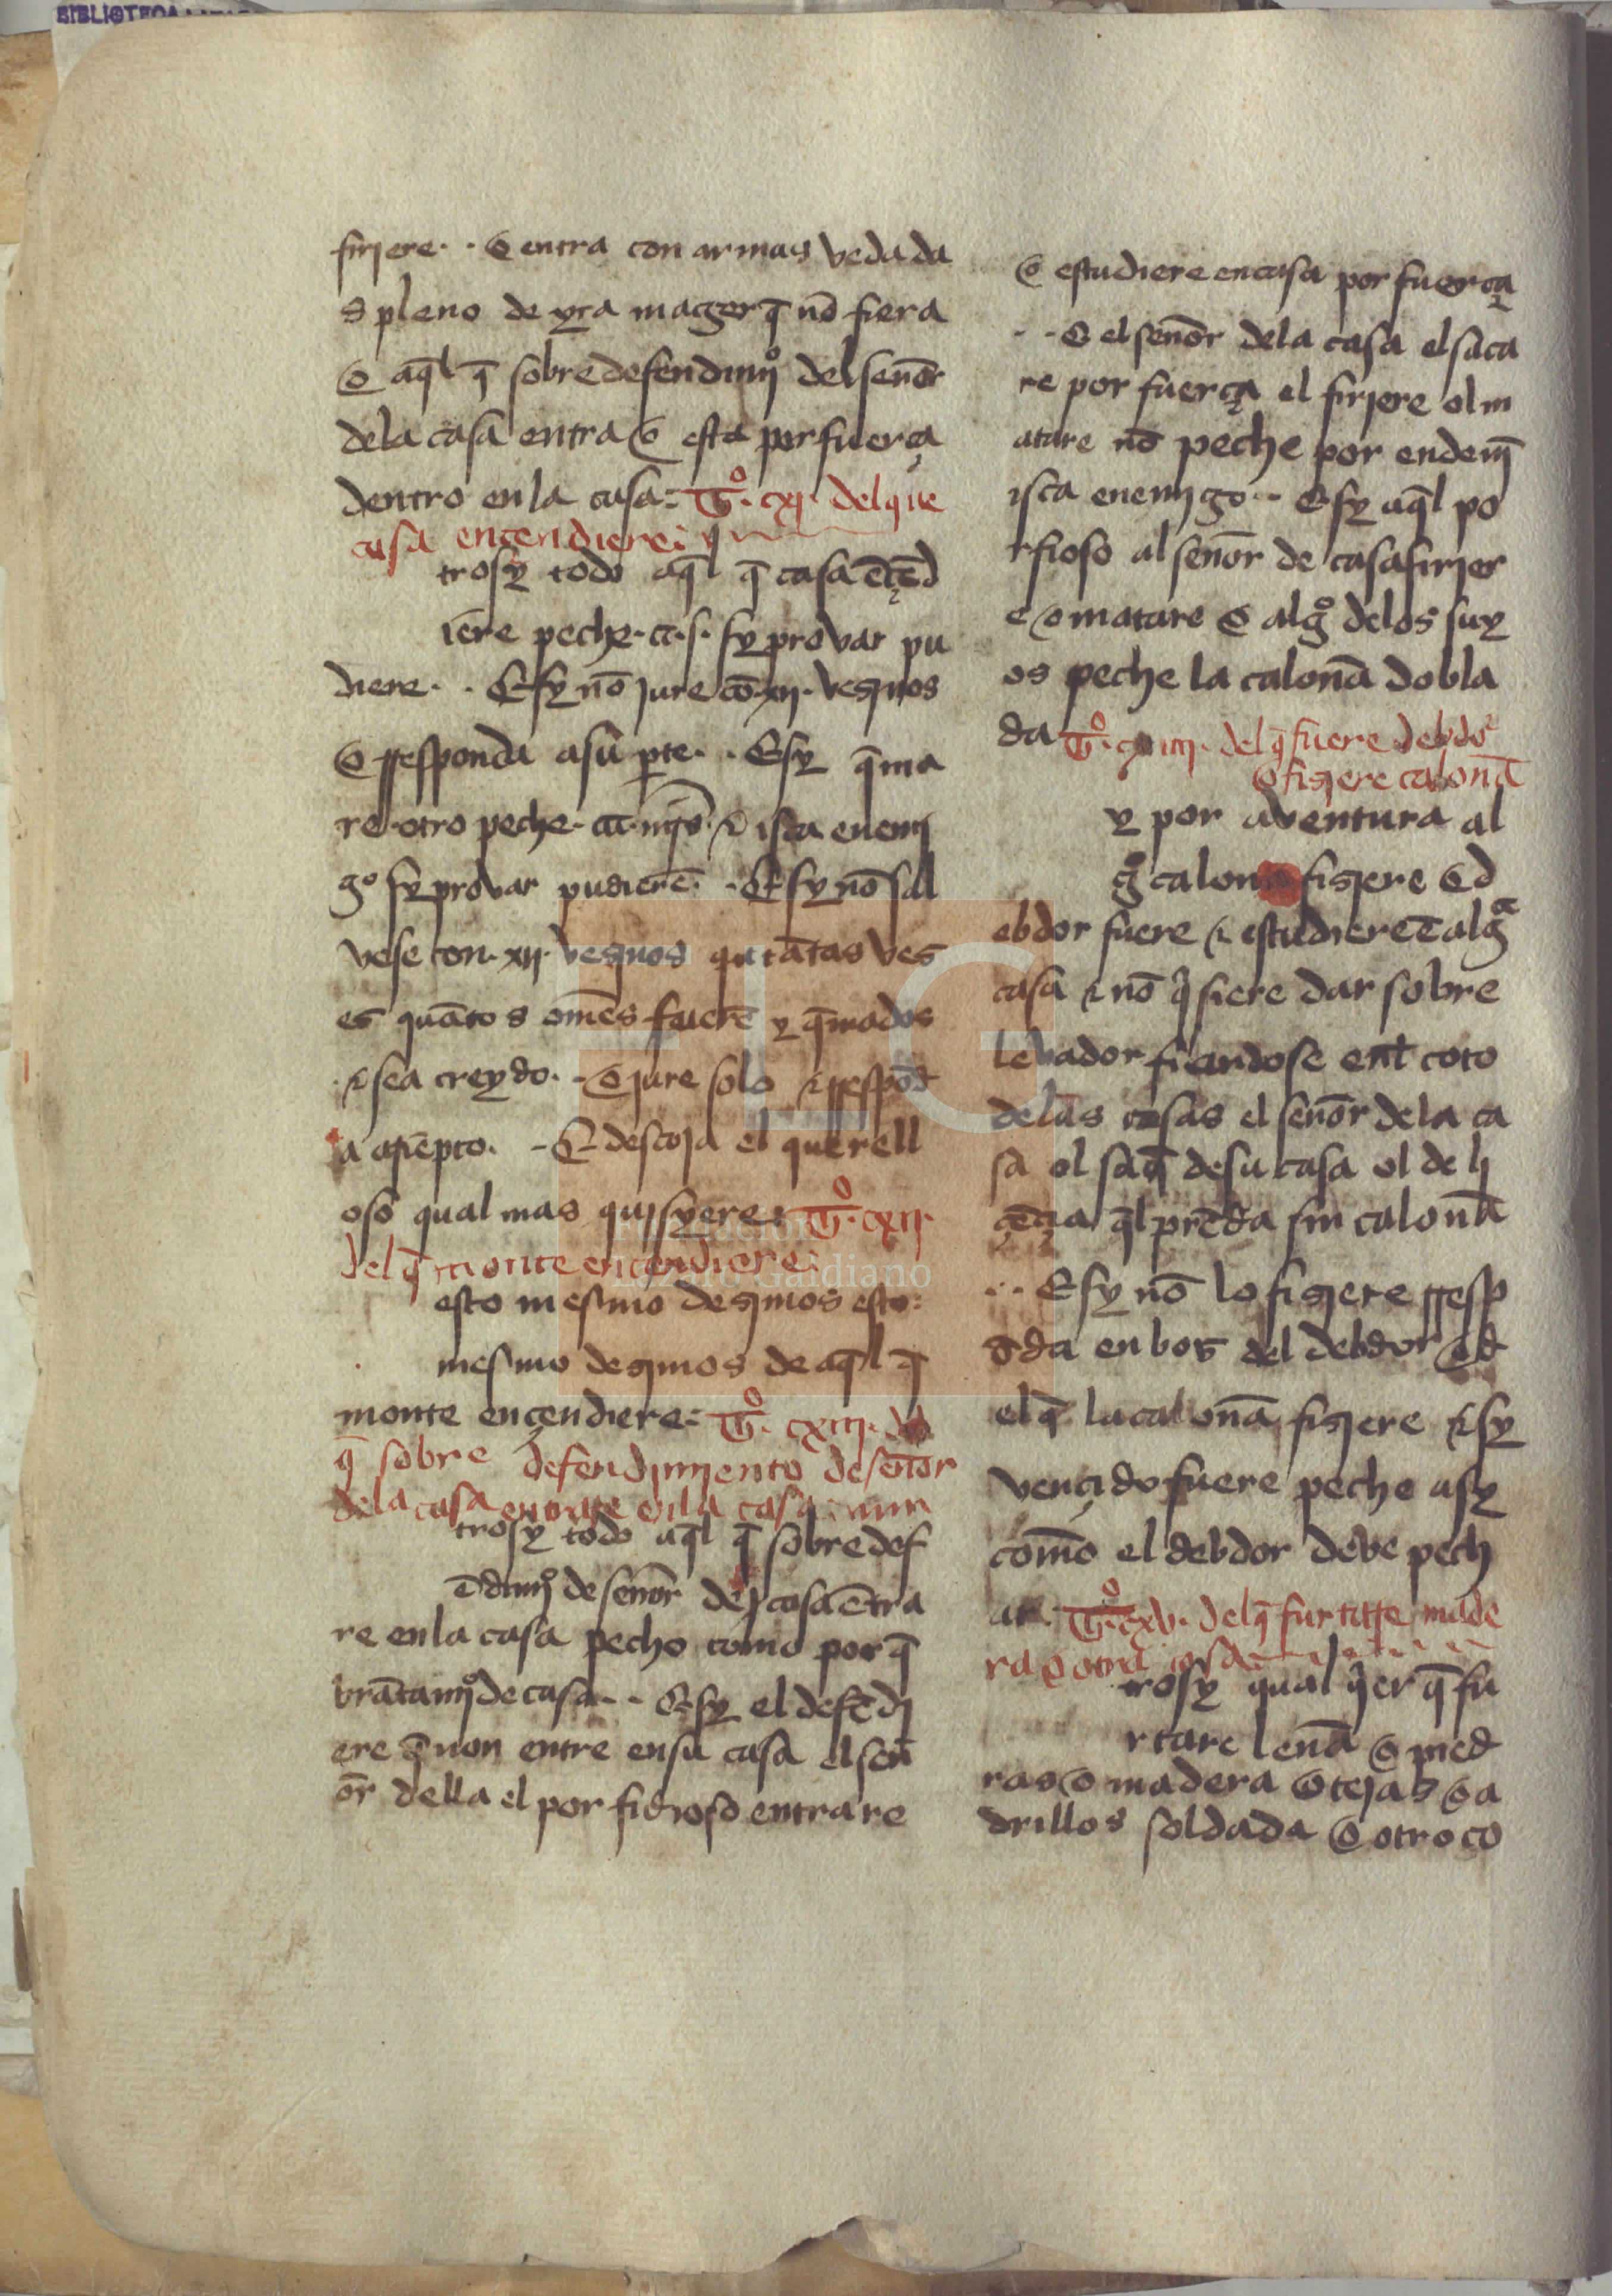 BIBLIOTECA
firiere · · O entra con armas vedada
s pleno de yra mager q̄ nō fiera
O aq̄l q̄ sobre defendimjº del señor
dela casa entra O esta por fuerça
dentro enla casa: Tº. cxj. del que
casa ençendiere:
trosy todo aq̄l q̄ casa ēçēd
iere peche · cc · s · sy provar pu
diere · · E sy nō jure cō · xij · veзinos
O rresponda a su ꝑte · · E sy q̄ma
re otro peche · cccc · mrs · & isca enemj
go sy provar pudierē · · E sy nō sal
vese con · xij · veзinos qutātas veз
es quātos omēs fuerē y q̄mados
& sea creydo · · O jure solo & rrespōd
a a rriepto · · E descoja el querell
oso qual mas quisyere: Tº. cxij.
del q̄ monte ençendiere:
esto mesmo deзimos esto:
mesmo deзimos de aq̄l q̄
monte ençendiere: Tº. cxiij. del
q̄ sobre defendimjento de señor
dela casa entrare enla casa
trosy todo aq̄l q̄ sobre def
ēdimjº de señor de casa ētra
re enla casa peche como por q̄
brātamjº de casa · · E sy el defēdi
ere q̄ non entre en su casa el señ
or della el porfidioso entrare
O estudiere en casa por fuerça
· · E el señor dela casa el saca
re por fuerça el firiere ol m
atare nō peche por ende nj̄
isca enemjgo · · E sy aq̄l po
rfioso al señor de casa firier
e o matare O algº delos suy
os peche la caloña dobla
da Tº. cxiiij. del q̄ fuere debdor
O fiзiere caloña
y por aventura al
gº caloña fiзiere E d
ebdor fuere & estudiere ē algª
casa & nō q̄siere dar sobre
levador fiandose enl coto
delas casas el señor dela ca
sa ol saq̄ de su casa ol de li
çēçia q̄l prēda sin caloña
· · E sy nō lo fiзiere rresp
ōda en boз del debdor E d
el q̄ la caloña fiзiere & sy
vençido fuere peche asy
comō el debdor deve pech
ar: Tº. cxv. del q̄ furtare made
ra O otra cosa
trosy qual q̄er q̄ fu
rtare leña O pied
ras O madera O tejas O a
drillos soldada O otro co
Lázaro Galdiano